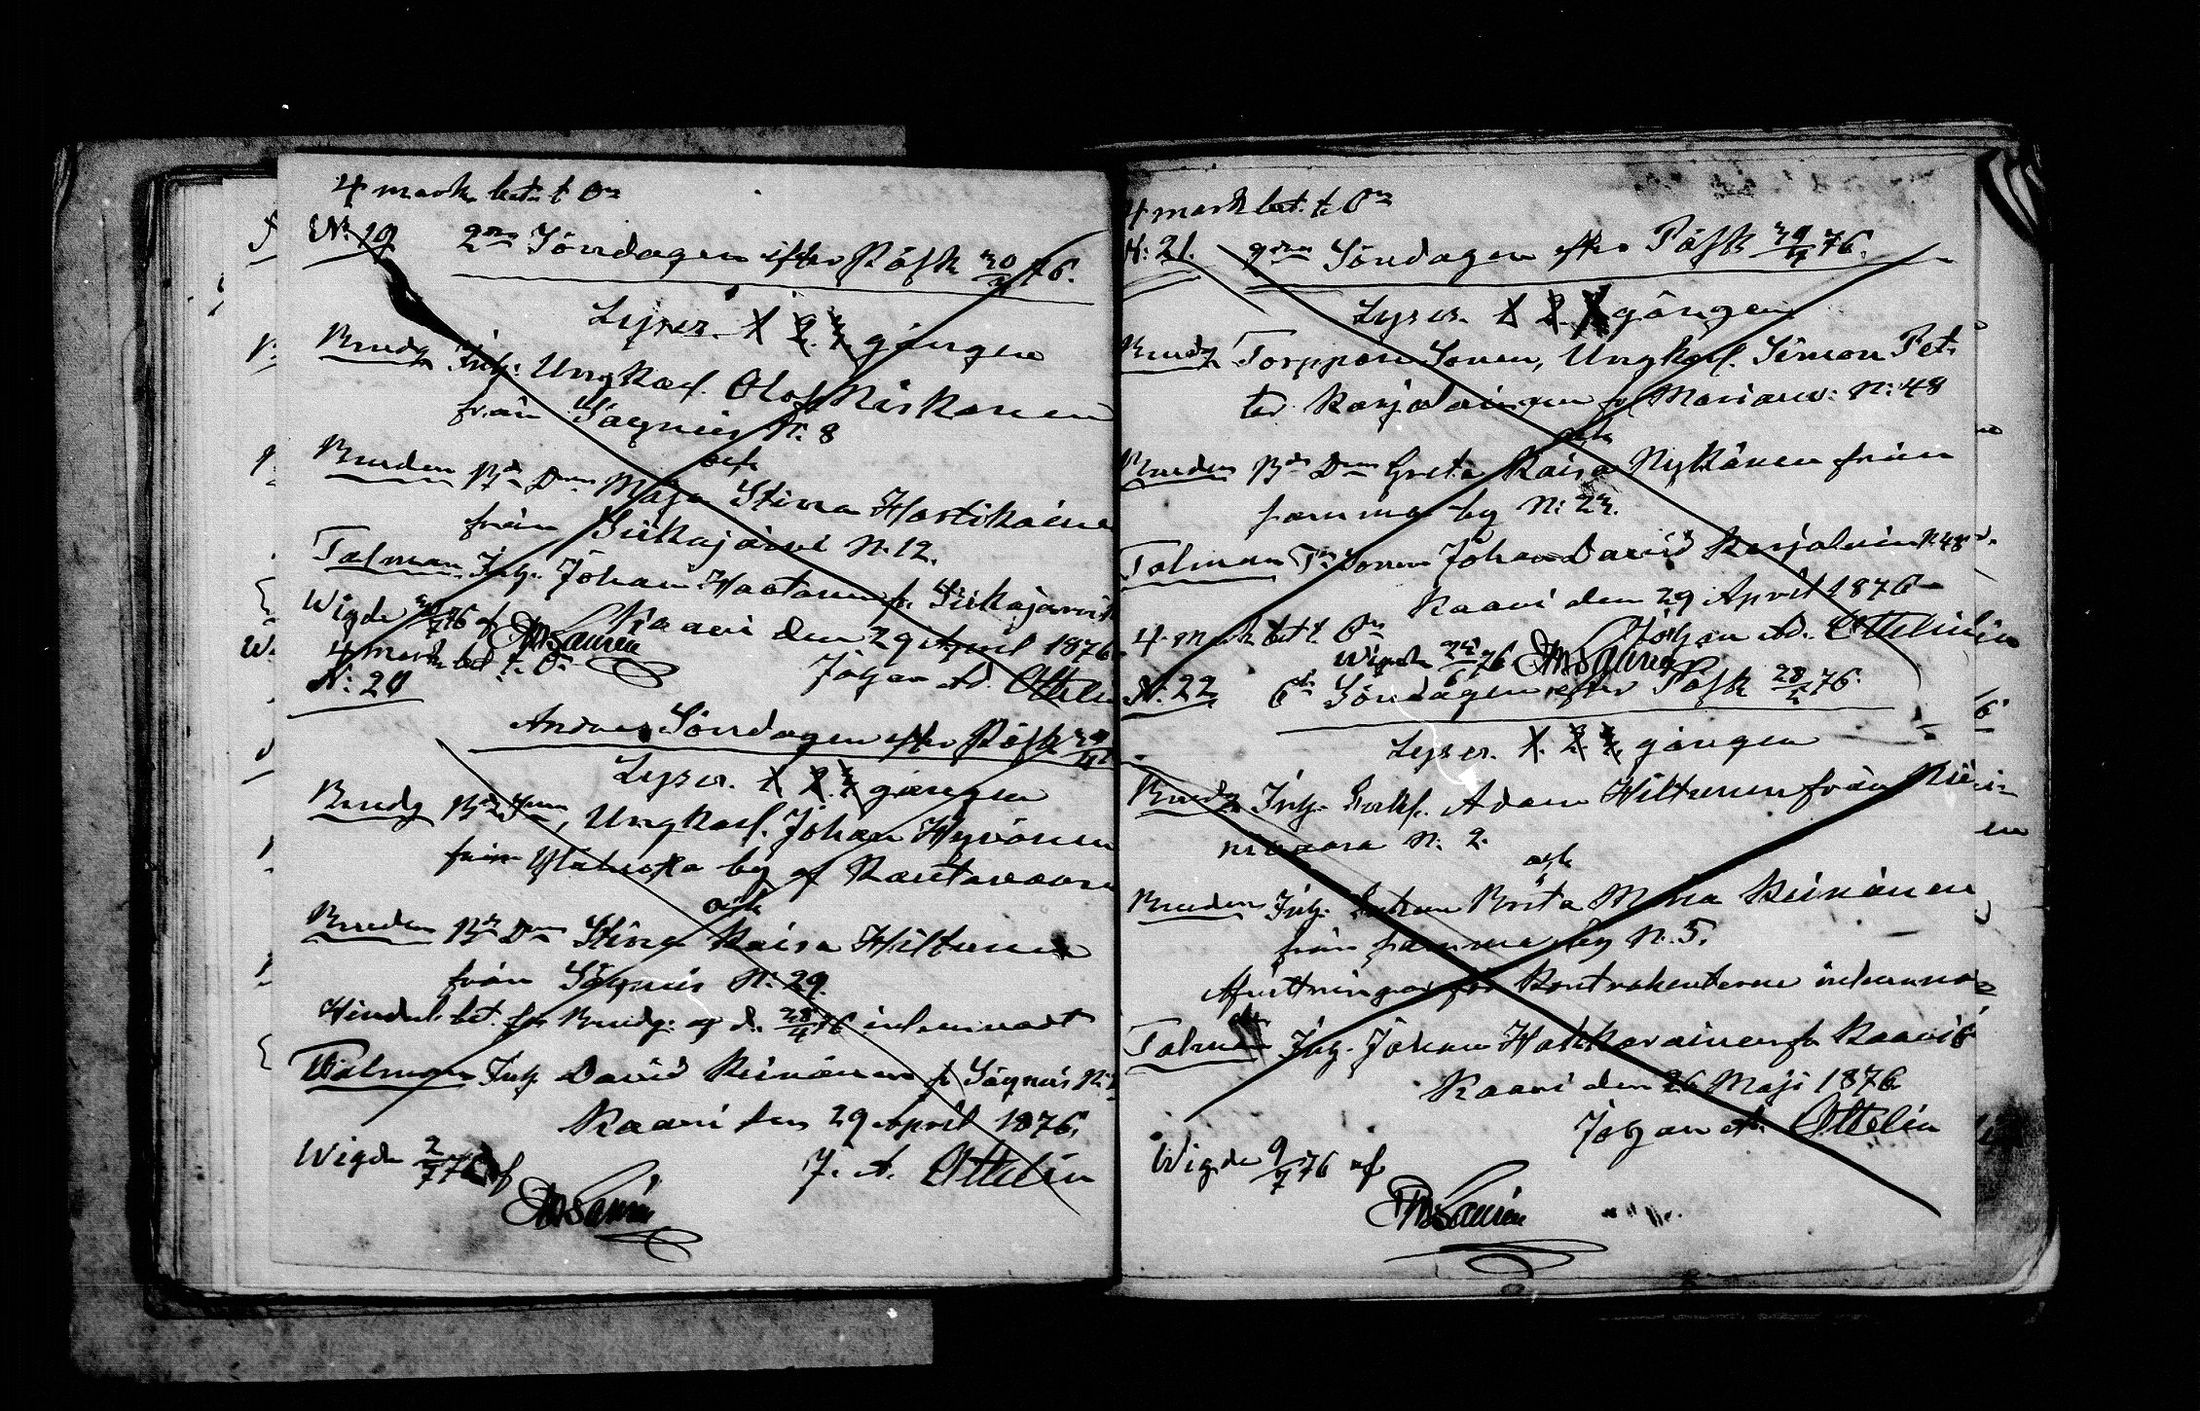 4 mark bet. t. Orn
N: 19 2dra Söndagen efter Påsk 30/4 76.
Lyses. 1 2. 3. gången
Brudg Inh. Ungkarl. Olof Niskanen
från Sägnäs N: 8
och
Bruden Bd Drn Maja Stina Hartikaine
från Siikajärvi N: 12.
Talman Inh. Johan Haatanen fr. Siikajärvi
Kaavi den 29 April 1876
Wigde /76 af
Johan Ad. Ottelin
4 mark bet t. Orn
N: 20
Andra Söndagen efter Påsk
Lyses. 1 2. 3 gången
Brudg Bd Son, Ungkarl. Johan Hyvönen
från by af Rautavaara
och
Bruden Bd Drn Stina Kaisa Hiltunen
från Sägnäs N: 29.
Hinderl. bet. för Brudg: af d. 28/4 76 inlemnadt
Talman Inh. David Reinänen fr Sägnäs N:
Kaavi den 29 April 1876.
J. A. Ottelin
Wigde 2/7 76 af
4 mark bet. t. Orn
N: 21. 2dra Söndagen efter Påsk 30/4 76.
Lyses. 1 2. 3 gången
Brudg Torppare Sonen, Ungkarl. Simon Pet-
ter Karjalainen fr Mariav: N: 48
och
Bruden Bd Drn Greta Kaisa Nykänen från
samma by N: 23.
Talman Tp Sonen Johan David Karjalain N 48
Kaavi den 29 April 1876
Johan Ad. Ottelin
4 mark bet t. Orn
Wigde /76
N: 22 6te Söndagen efter Påsk 28/5 76.
Lyses. 1. 2. 3. gången
Brudg Inh. Enkl. Adam Hiltunen från Niin-
nivaara N: 2.
och
Bruden Inh. Enkan Brita Maria Reinänen
från samma by N: 5.
Afvittringar för Kontrahenterne inlemna-
de
Talman Inh. Johan Hakkarainen fr Kaavi 6
Kaavi den 26 Maji 1876.
Johan A. Ottelin
Wigde 9/7 76 af